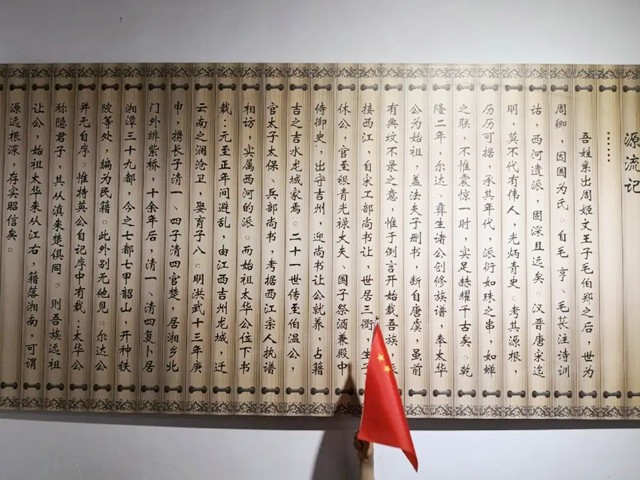 源流记
吾姓系出周姬文王子毛伯郑之后，世为
周卿，因国为氏。自毛亨、毛长注诗训
诂，西河遗派，固深且远矣。汉晋唐宋迄
明，莫不代有伟人，光炳青史。考其源根，
历历可据。承其年代，派衍如珠之串，如蝉
之联，不惟震惊一时，实足赫耀千古矣。乾
隆二年，尔达、彝生诸公创修族谱，奉太华
公为始祖，盖法夫子删书，断自唐虞，虽前
有典坟不录之意。惟于例言开始载吾族，派
接西江，自宋工部尚书让，世居三衢，生子
休公，官至银青光禄大夫、国子祭酒兼殿中
侍御史，出守吉州，迎尚书让公就养，占籍
吉之吉水龙城家焉。二十一世传至伯温公，
官太子太保、兵部尚书，考据西江宗人执谱
相访，实属西河的派。而始祖太华公位下书
载：元至正年间避乱，由江西吉州龙城，迁
云南之澜沧卫，娶育子八。明洪武十三年庚
申，携长子清一、四子清四官楚，居湘乡北
门外绯紫桥，十余年后，清一、清四复卜居
湘潭三十九都，今之七都七甲韶山，开种铁
陂等处，编为民籍。此外别无他见。尔达公
并无自序。惟特英公自记序中有载：太华公
称隐君子，其从滇来楚俱同。则吾族远祖
让公，始祖太华来从江右，籍落湘南，可谓
源远根深，存实昭信矣。